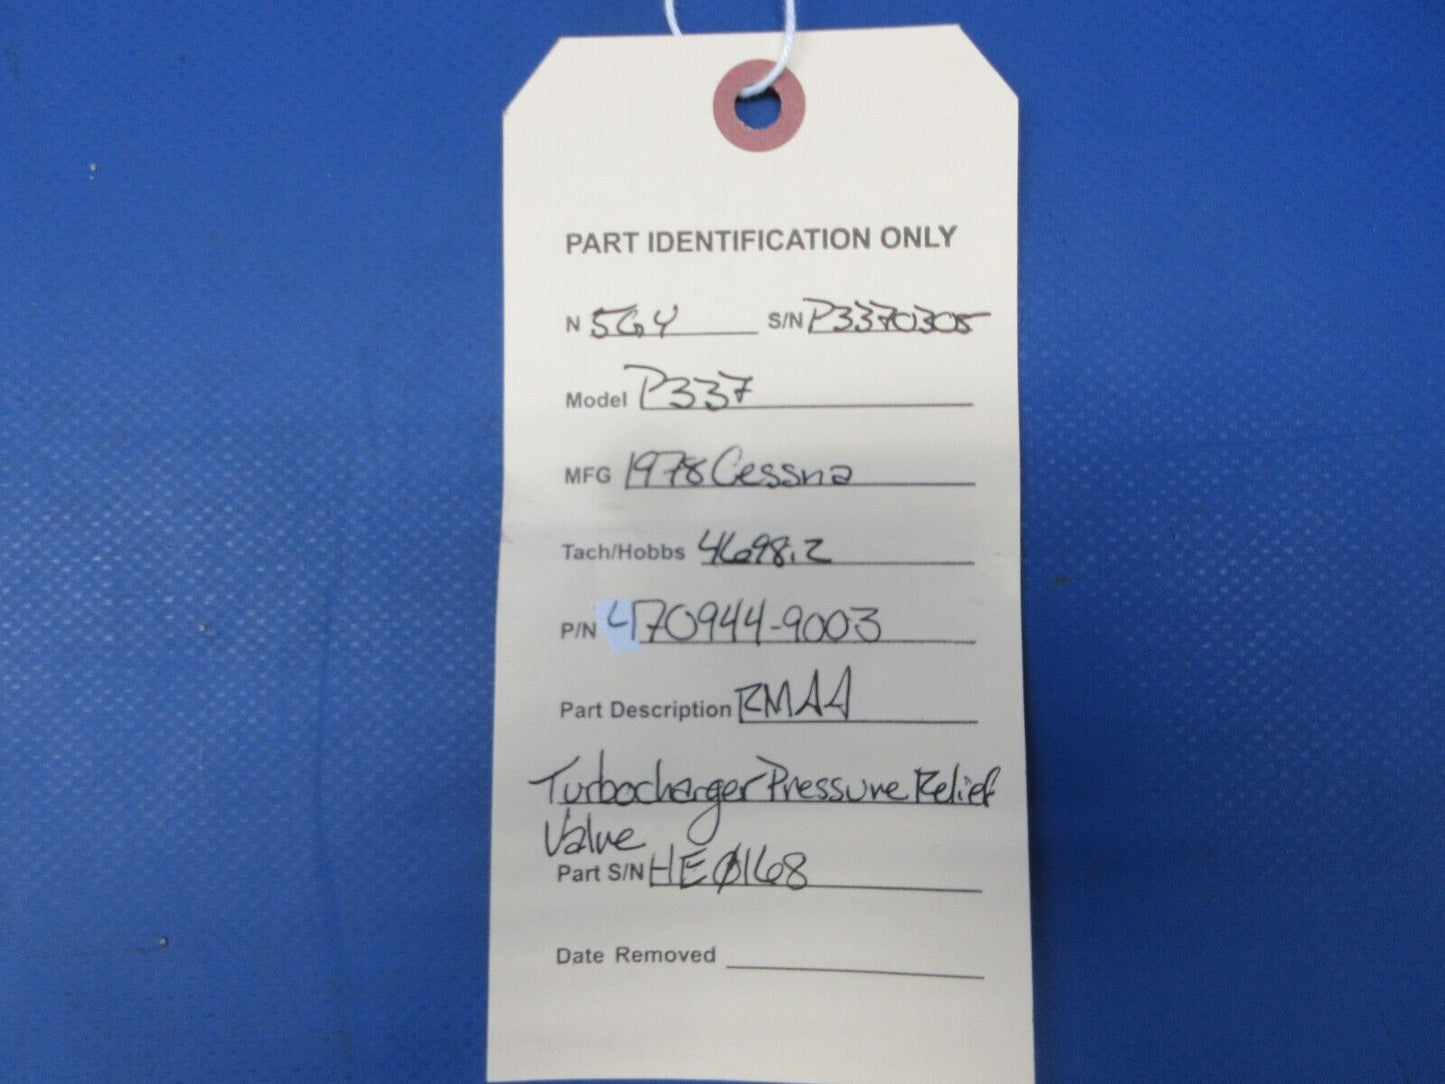 PART IDENTIFICATION ONLY
N 5GY S/N P3370305
Model P337
MFG 1978 Cessna
Tach/Hobbs 4698.2
P/N 470944-9003
Part Description RMAA
Turbocharger Pressure Relief
Valve
Part S/N HEØ168
Date Removed